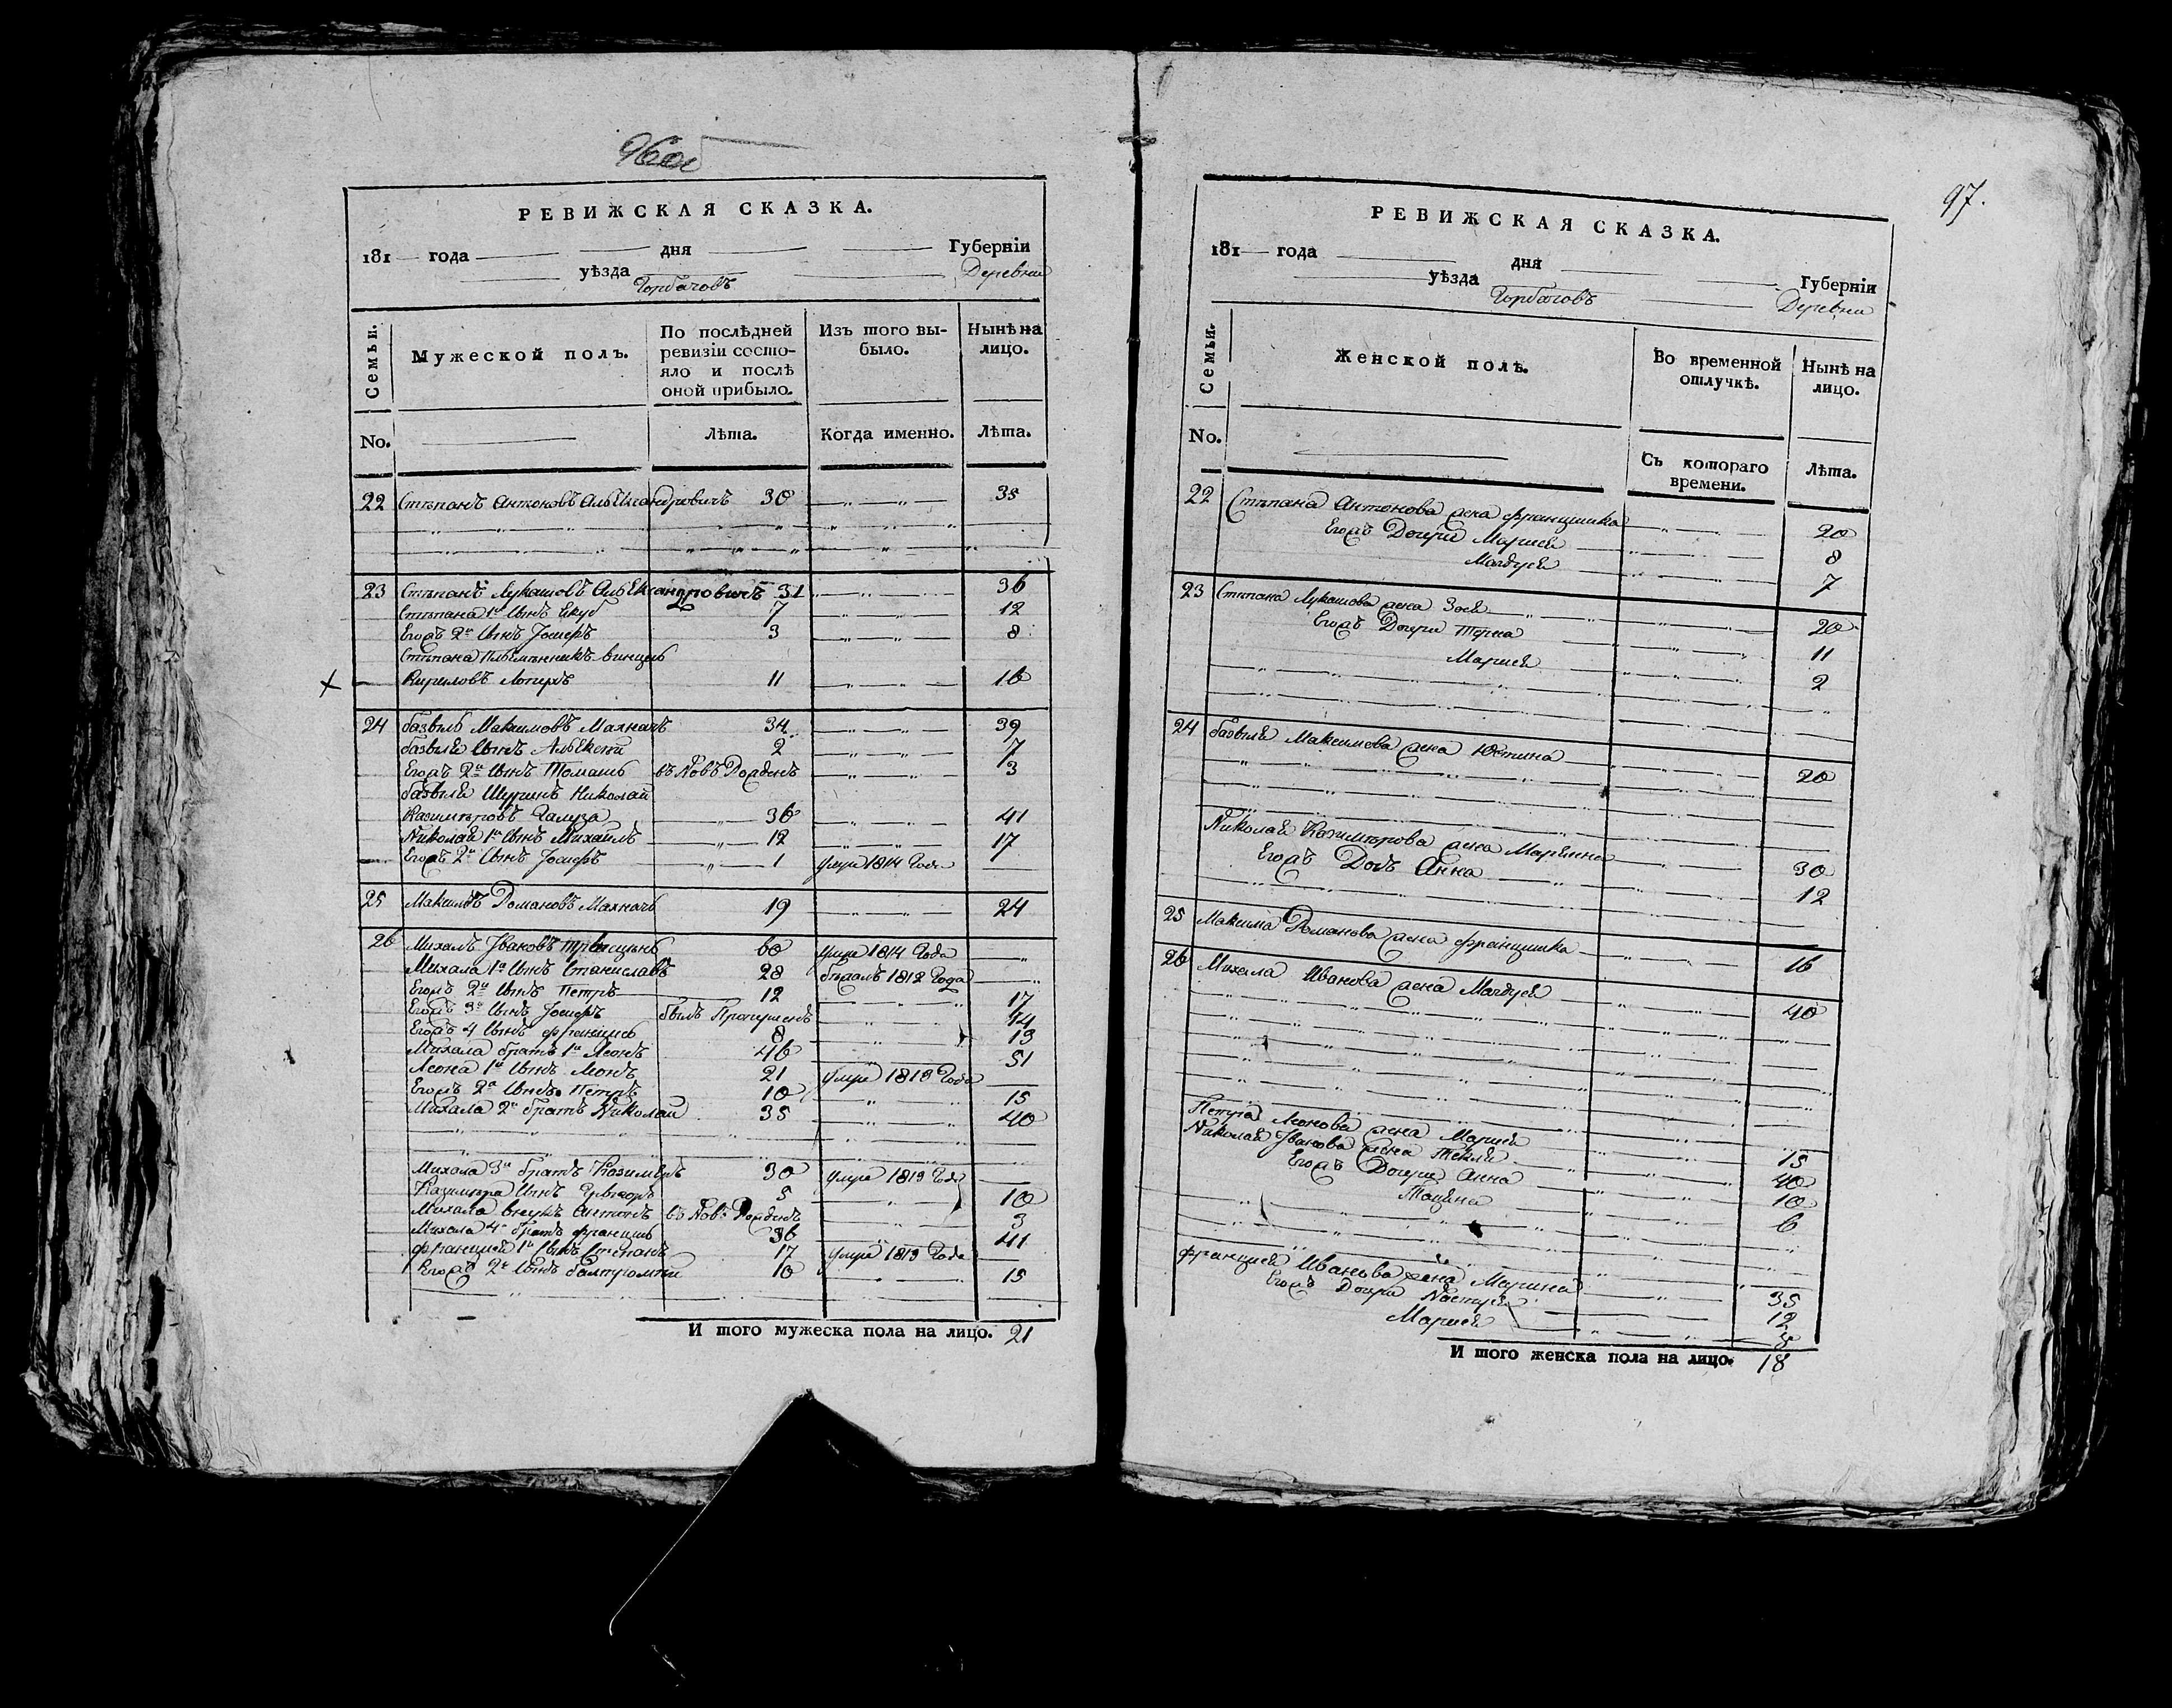 96об
РЕВИЖСКАЯ СКАЗКА.
181 года дня Губерніи
уѣзда Деревни
Горбачовъ
Семьи.
Мужеской полъ.
По послѣдней ревизіи состояло и послѣ оной прибыло.
Изъ того выбыло.
Нынѣ на лицо.
No.
Лѣта.
Когда именно.
Лѣта.
22 Стѣпанъ Антоновъ Алѣксандровичъ 30 35
23 Стѣпанъ Лукашовъ Алѣксандровичъ 31 36
Стѣпана 1й сынъ Якуб 7 12
Егожъ 2й сынъ Іосифъ 3 8
Стѣпана племѣнникъ Винцеь
Кириловъ 11 16
24 Базыль Максимовъ Махначъ 34 39
Базыля сынъ Алѣксей 2 7
Егожъ 2й сынъ Томашь въ Новъ Рожденъ 3
Базыля Шуринъ Николай
Казимѣровъ Галуза 36 41
Николая 1й сынъ Михайлъ 12 17
Егожъ 2й сынъ Іосифъ 1 умре 1814 Года
25 Максимъ Романовъ Махначь 19 24
26 Михалъ Івановъ 60 умре 1814 Года
Михала 1й сынъ Станиславъ 28 бѣжалъ 1812 Года
Егожъ 2й сынъ Петръ 12 17
Егожъ 3й сынъ Іосифъ былъ Пропущенъ 14
Егожъ 4 сынъ Францишь 8 13
Михала братъ 1й Леонъ 46 51
Леона 1й сынъ Леонъ 21 умре 1813 Года
Егожъ 2й сынъ Петръ 10 15
Михала 2й братъ Николай 35 40
Михала 3й братъ Казимѣръ 30 умре 1813 Года
Казимѣра сынъ Грыгоръ 5 10
Михала внукъ Антонъ въ Новъ Рожденъ 3
Михала 4й братъ Францишь 36 41
Францишей 1й сынъ Стѣпанъ 17 умре 1813 Года
Егожъ 2й сынъ Балтромѣй 10 15
И того мужеска пола на лицо. 21
97.
РЕВИЖСКАЯ СКАЗКА.
181 года дня Губерніи
уѣзда Деревни
Горбачовъ
Семьи.
Женской полъ.
Во временной отлучкѣ.
Нынѣ на лицо.
No.
Съ котораго времени.
Лѣта.
22 Стѣпана Антонова жена Францишка 20
Егожъ Дочери Марыя 8
Магдуся 7
23 Стѣпана Лукашова жена Зося 20
Егожъ Дочери Тереса 11
Марыя 2
24 Базыля Максимова жена Юстина 20
Николая Казимѣрова жена Марьяна 30
Егожъ Дочь Анна 12
25 Максима Романова жена Францишка 16
26 Михала Иванова жена Магдуся 40
Петра Леонова жена Марыя 15
Николая Іванова жена Текля 40
Егожъ Дочери Анна 10
Тацяна 6
Францишей Иванова жена Марина 35
Егожъ Дочери Настуля 12
Марыя
И того женска пола на лицо. 18